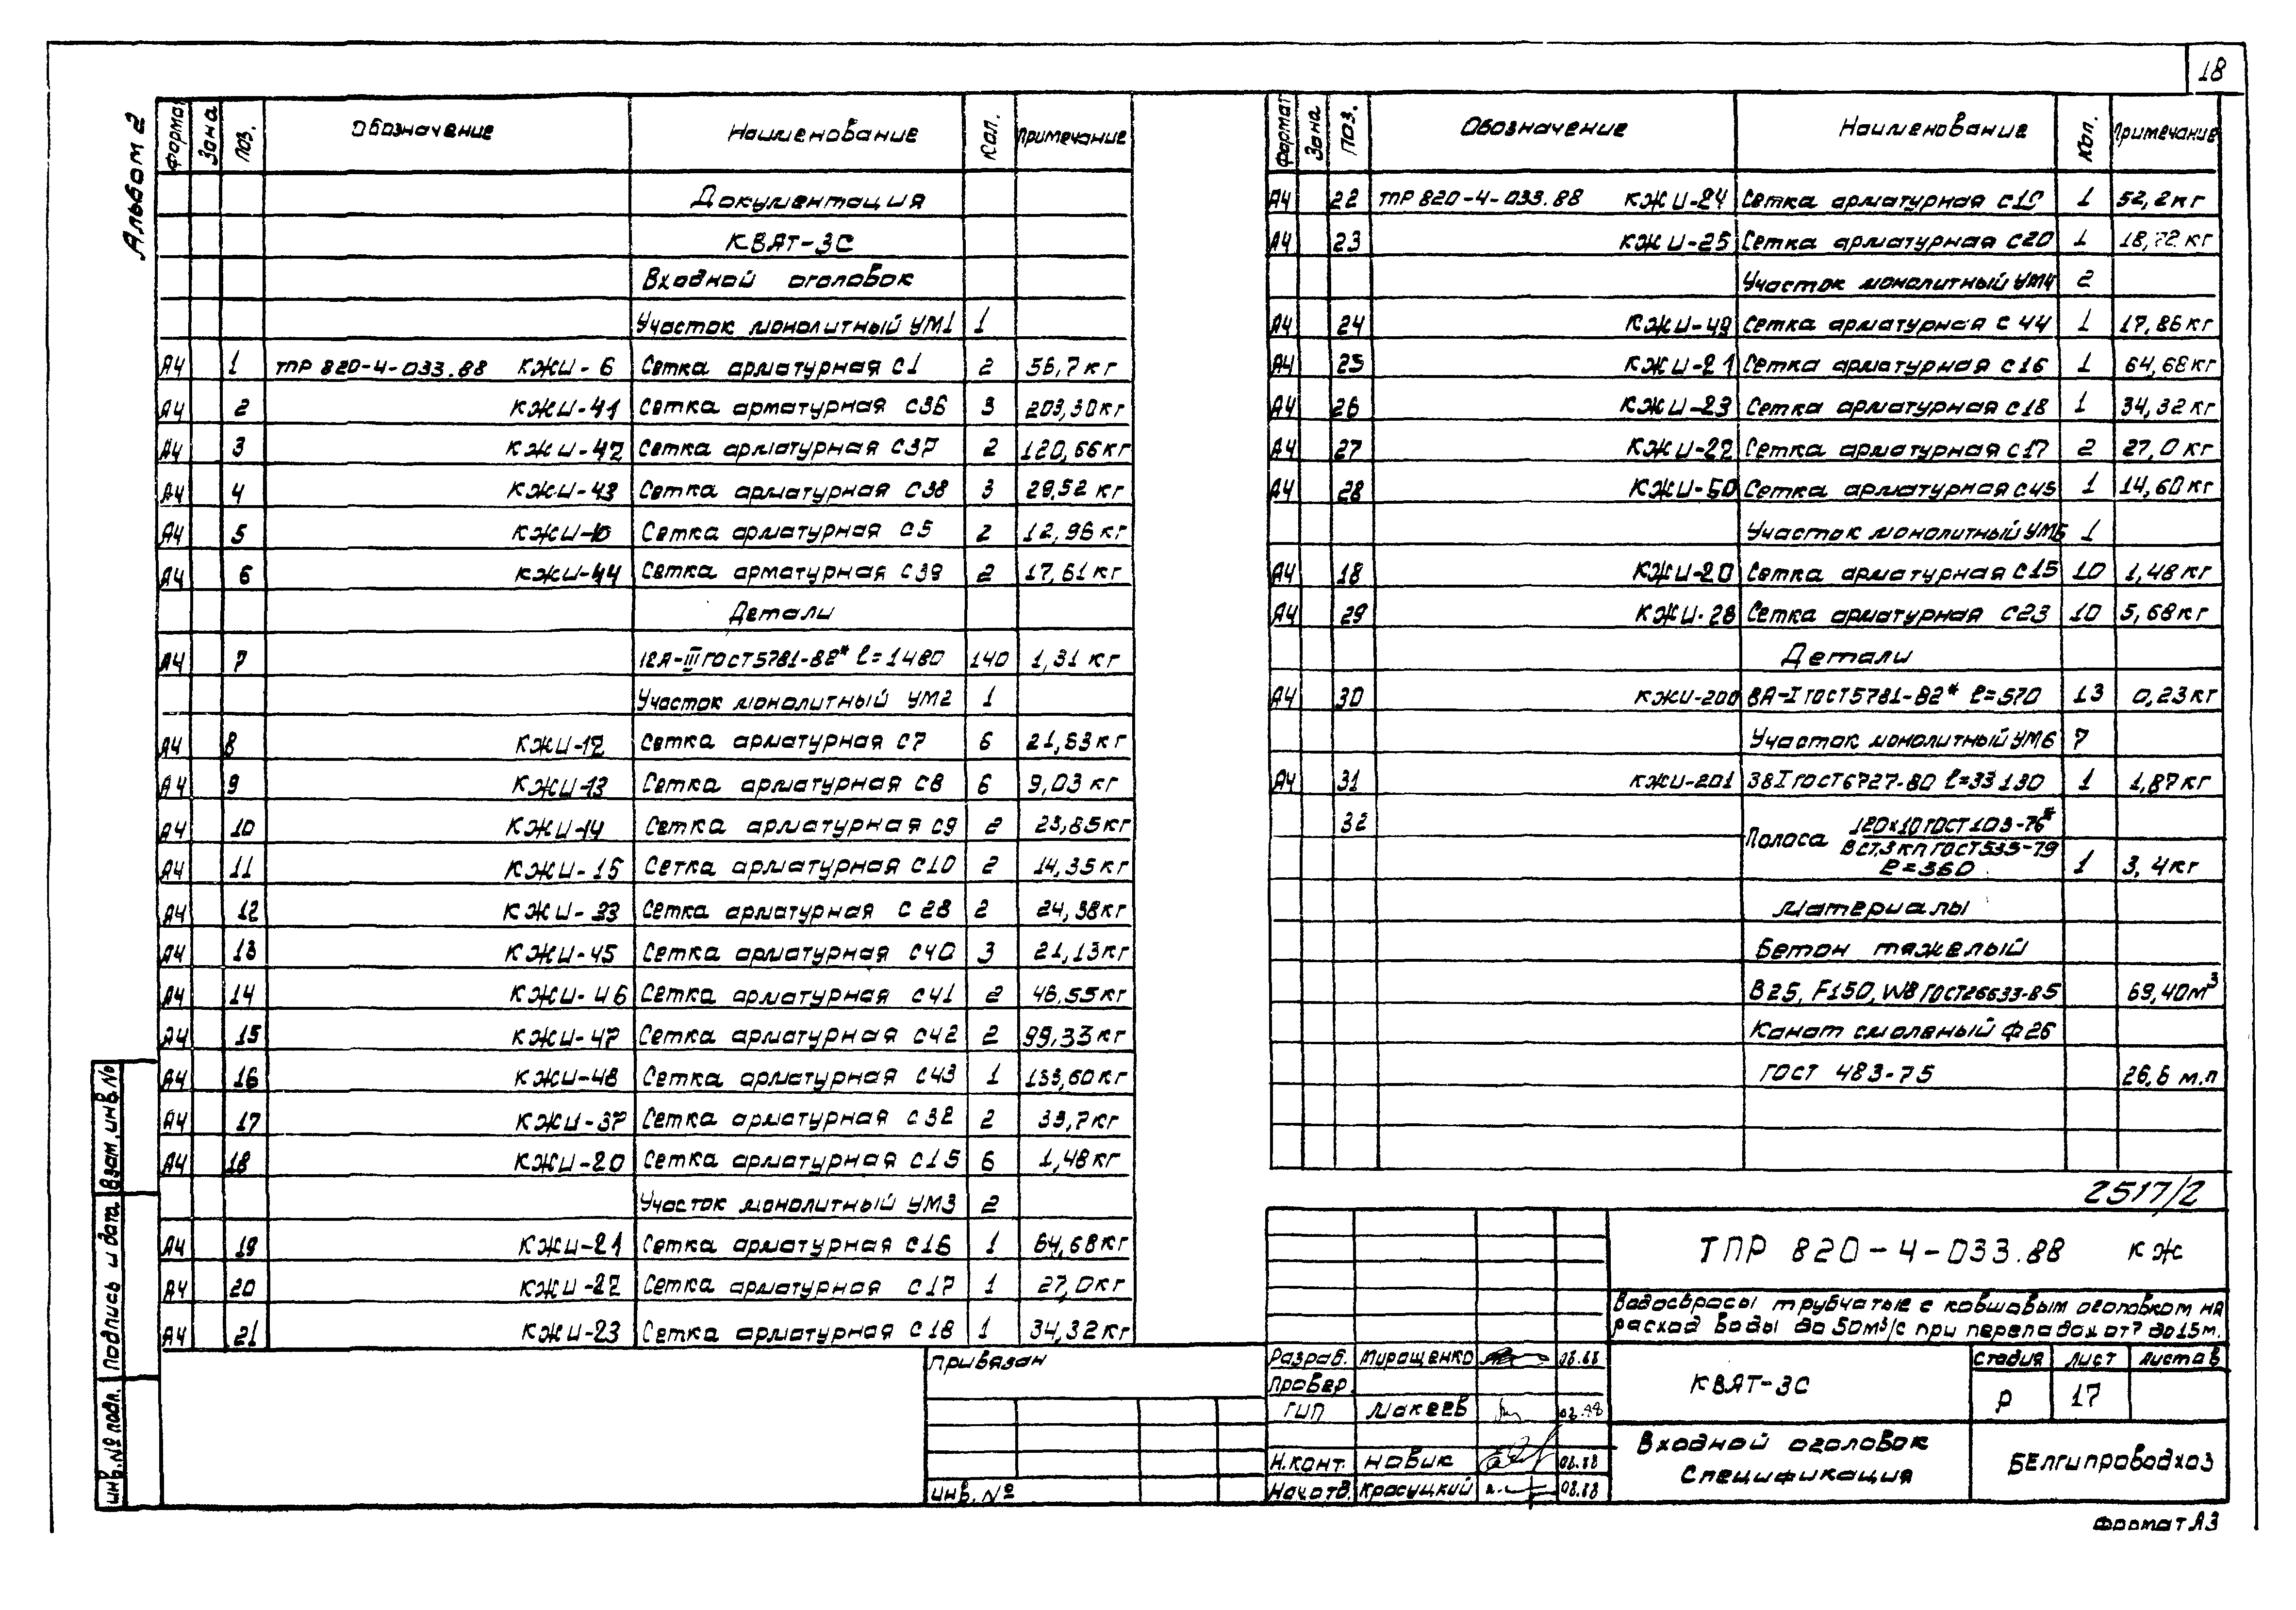 18
Альбом 2
Формат Зона Поз. Обозначение Наименование Кол. Примечание
Документация
КВЯТ-3С
Входной оголовок
Участок монолитный УМ1 1
А4 1 ТПР 820-4-033.88 КЖИ-6 Сетка арматурная С1 2 56,7кг
А4 2 КЖИ-41 Сетка арматурная С36 3 203,30кг
А4 3 КЖИ-42 Сетка арматурная С37 2 120,66кг
А4 4 КЖИ-43 Сетка арматурная С38 3 29,52 кг
А4 5 КЖИ-10 Сетка арматурная С5 2 12,96 кг
А4 6 КЖИ-44 Сетка арматурная С39 2 17,61кг
Детали
А4 7 12А-III ГОСТ 5781-82* ℓ=1480 140 1,31 кг
Участок монолитный УМ2 1
А4 8 КЖИ-12 Сетка арматурная С7 6 21,63кг
А4 9 КЖИ-13 Сетка арматурная С8 6 9,03 кг
А4 10 КЖИ-14 Сетка арматурная С9 2 23,85кг
А4 11 КЖИ-15 Сетка арматурная С10 2 14,35кг
А4 12 КЖИ-33 Сетка арматурная С28 2 24,38кг
А4 13 КЖИ-45 Сетка арматурная С40 3 21,13кг
А4 14 КЖИ-46 Сетка арматурная С41 2 46,55кг
А4 15 КЖИ-47 Сетка арматурная С42 2 99,33кг
А4 16 КЖИ-48 Сетка арматурная С43 1 133,60кг
А4 17 КЖИ-37 Сетка арматурная С32 2 33,7кг
А4 18 КЖИ-20 Сетка арматурная С15 6 1,48кг
Участок монолитный УМ3 2
А4 19 КЖИ-21 Сетка арматурная С16 1 64,68кг
А4 20 КЖИ-22 Сетка арматурная С17 1 27,0кг
А4 21 КЖИ-23 Сетка арматурная С18 1 34,32кг
Формат Зона Поз. Обозначение Наименование Кол. Примечание
А4 22 ТПР 820-4-033.88 КЖИ-24 Сетка арматурная С19 1 52,2кг
А4 23 КЖИ-25 Сетка арматурная С20 1 18,72 кг
Участок монолитный УМ4 2
А4 24 КЖИ-49 Сетка арматурная С44 1 17,86кг
А4 25 КЖИ-21 Сетка арматурная С16 1 64,68кг
А4 26 КЖИ-23 Сетка арматурная С18 1 34,32кг
А4 27 КЖИ-22 Сетка арматурная С17 2 27,0кг
А4 28 КЖИ-50 Сетка арматурная С45 1 14,60кг
Участок монолитный УМ5 1
А4 18 КЖИ-20 Сетка арматурная С15 10 1,48кг
А4 29 КЖИ-28 Сетка арматурная С23 10 5,68кг
Детали
А4 30 КЖИ-200 8А-I ГОСТ 5781-82* ℓ=570 13 0,23кг
Участок монолитный УМ6 7
А4 31 КЖИ-201 3ВI ГОСТ 6727-80 ℓ=33130 1 1,87кг
32 Полоса 120х10 ГОСТ 103-76*
ВСт3кп ГОСТ 535-79
ℓ=360 1 3,4кг
Материалы
Бетон тяжелый
В25, F150, W8 ГОСТ 26633-85 69,40м³
Канат смоляный Ф26
ГОСТ 483-75 26,6 м.п
2517/2
ТПР 820-4-033.88 КЖ
Водосбросы трубчатые с ковшовым оголовком на
расход воды до 50м³/с при перепадах от 7 до 15м.
КВЯТ-3С
Стадия Лист Листов
Р 17
Входной оголовок
Спецификация
БЕЛГИПРОВОДХОЗ
Разраб. Мирощенко 08.88
Провер.
ГИП Макеев 08.88
Н.конт. Новик 08.88
Нач.отд. Красуцкий 08.88
Привязан
Инв.№
Инв.№ подл. Подпись и дата Взам.инв.№
Формат А3